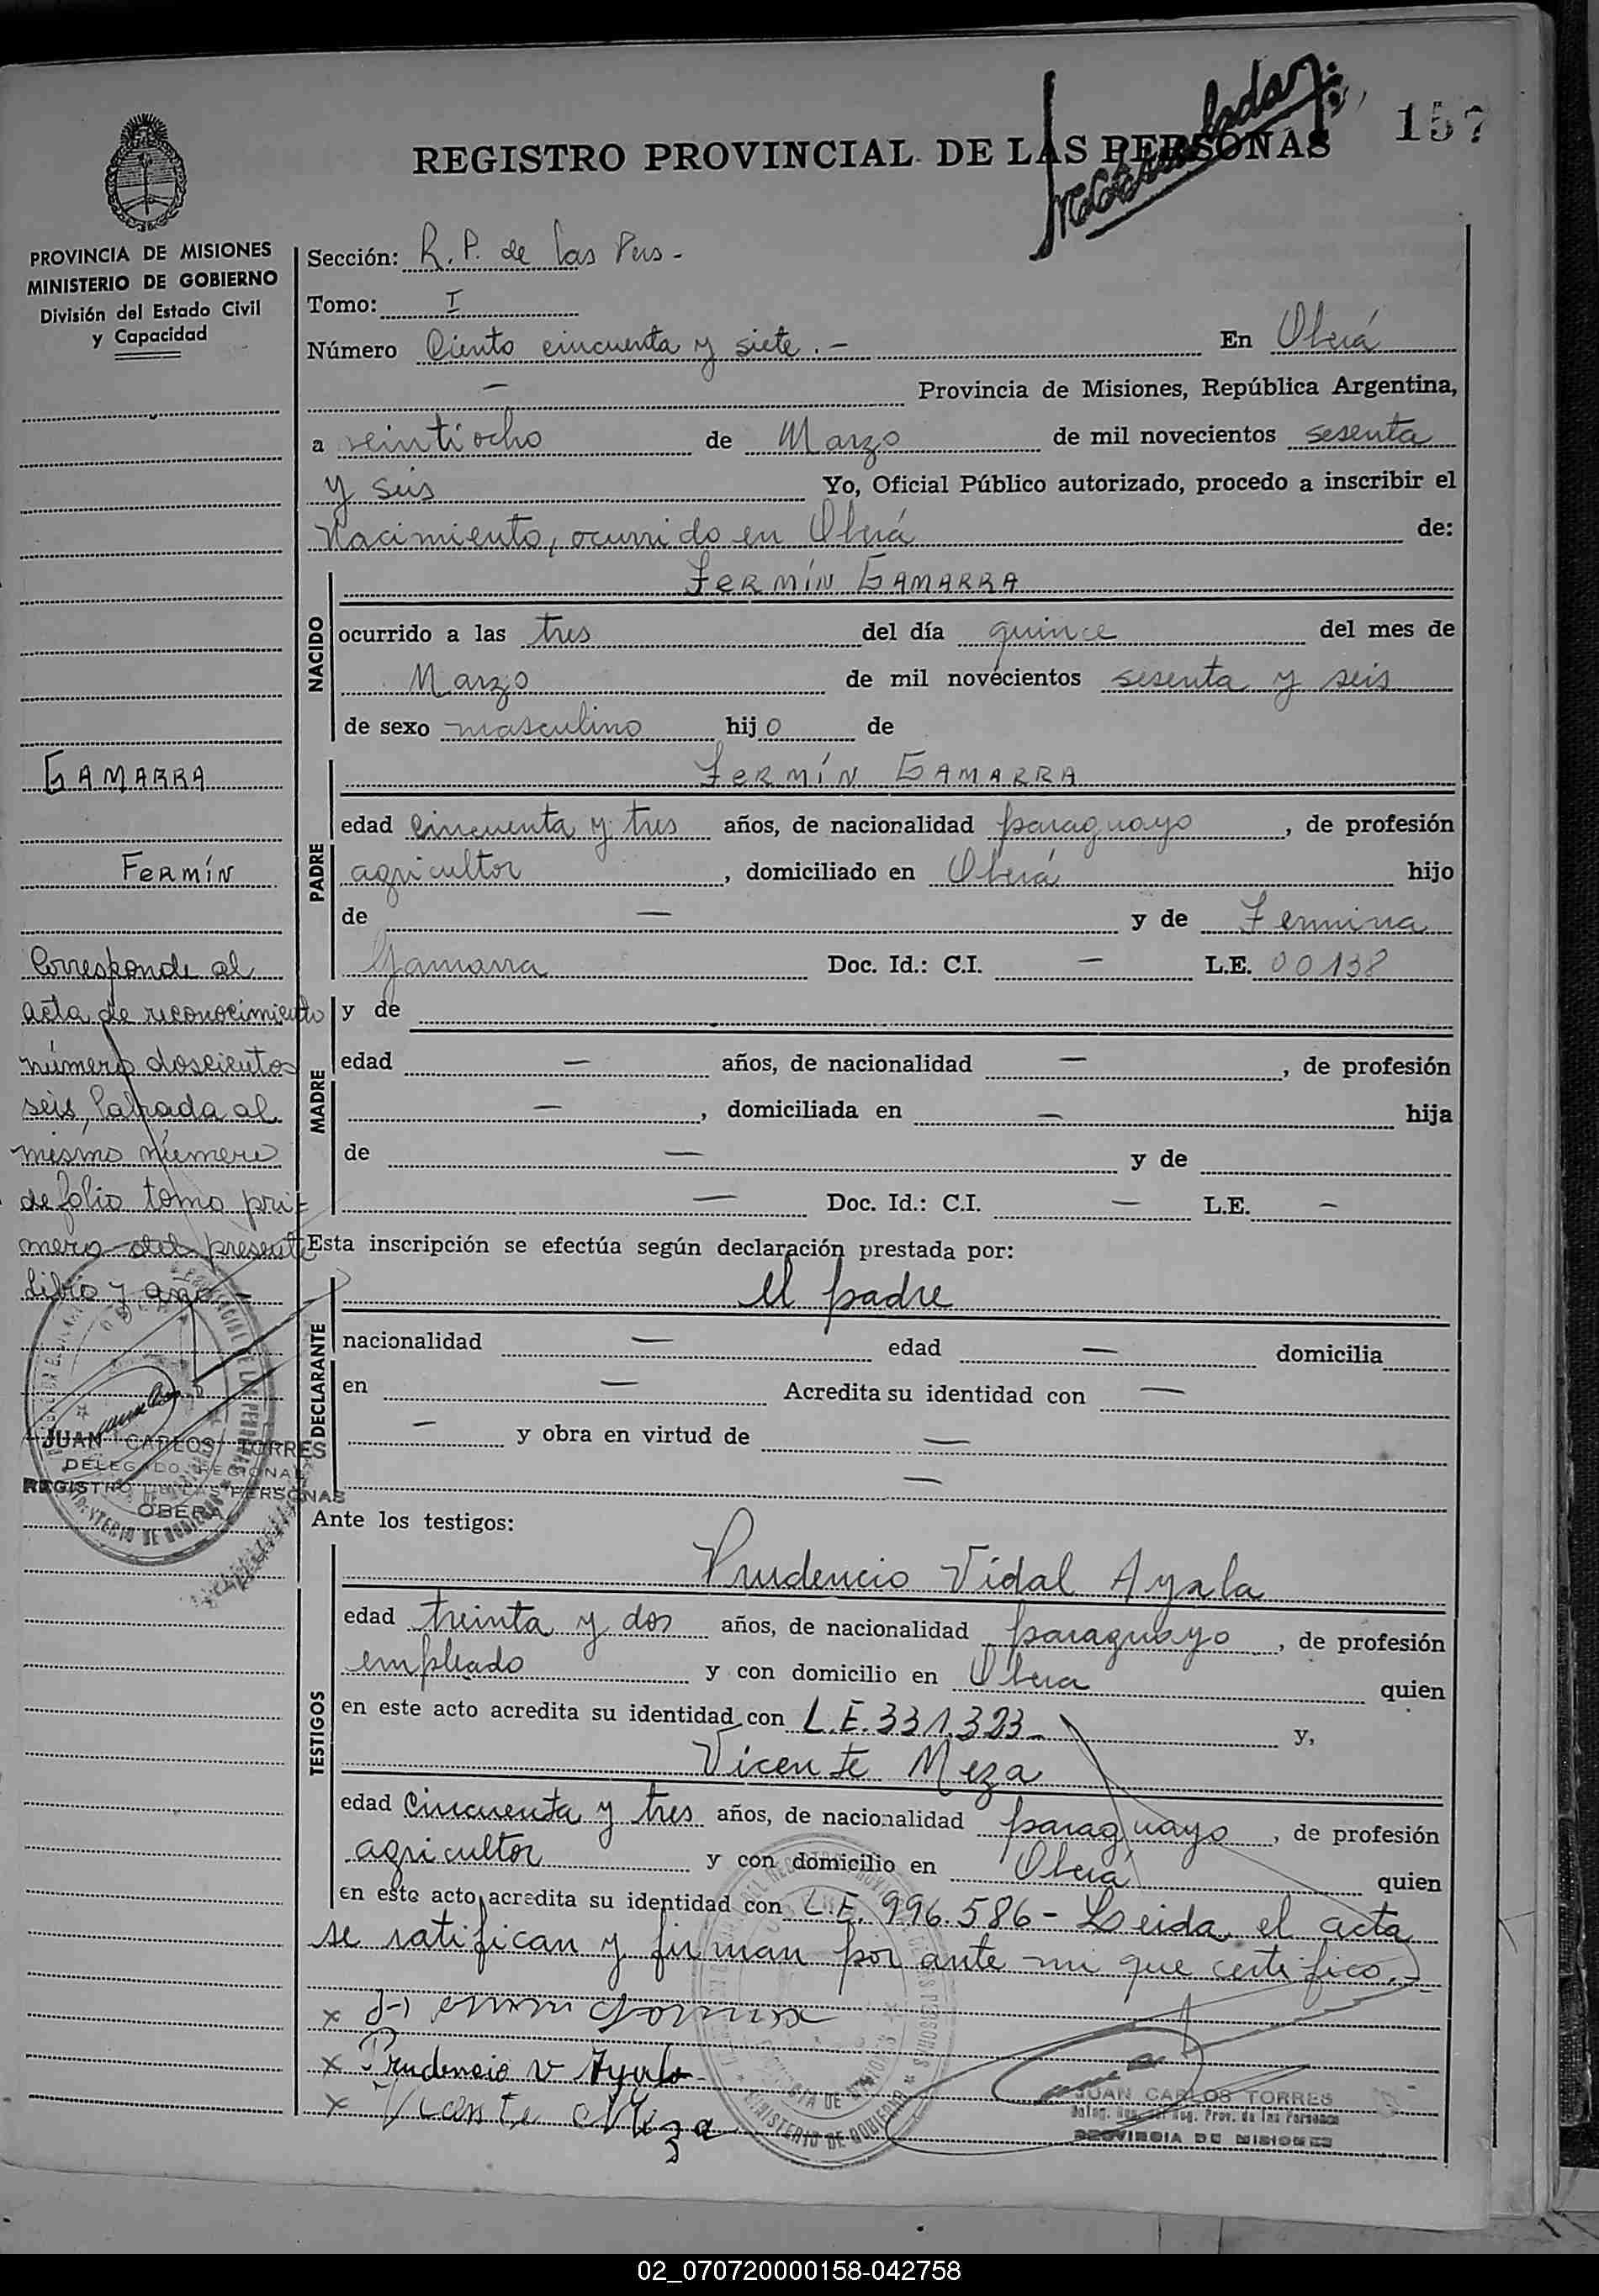 157
REGISTRO PROVINCIAL DE LAS PERSONAS
PROVINCIA DE MISIONES
MINISTERIO DE GOBIERNO
División del Estado Civil
y Capacidad
Sección: R. P. de las Pers-
Tomo: I
Número Ciento cincuenta y siete.- En Oberá
— Provincia de Misiones, República Argentina,
a veintiocho de Marzo de mil novecientos sesenta
y seis Yo, Oficial Público autorizado, procedo a inscribir el
Nacimiento, ocurrido en Oberá de:
FERMÍN GAMARRA
NACIDO
ocurrido a las tres del día quince del mes de
Marzo de mil novecientos sesenta y seis
de sexo masculino hijo de
FERMÍN GAMARRA
PADRE
edad cincuenta y tres años, de nacionalidad paraguayo, de profesión
agricultor, domiciliado en Oberá hijo
de — y de Fermina
Gamarra Doc. Id.: C.I. — L.E. 00138
MADRE
y de
edad — años, de nacionalidad —, de profesión
—, domiciliada en — hija
de — y de
— Doc. Id.: C.I. — L.E. —
Esta inscripción se efectúa según declaración prestada por:
el padre
DECLARANTE
nacionalidad — edad — domicilia
en — Acredita su identidad con —
— y obra en virtud de —
—
Ante los testigos:
TESTIGOS
Prudencio Vidal Ayala
edad treinta y dos años, de nacionalidad paraguayo, de profesión
empleado y con domicilio en Obera quien
en este acto acredita su identidad con L.E. 331.323- y,
Vicente Meza
edad cincuenta y tres años, de nacionalidad paraguayo, de profesión
agricultor y con domicilio en Oberá quien
en este acto acredita su identidad con L.E. 996.586- Leida el acta
se ratifican y firman por ante mi que certifico.-
x
x Prudencio V Ayala
x Vicente Meza
JUAN CARLOS TORRES
PROVINCIA DE MISIONES
GAMARRA
FERMÍN
Corresponde al
acta de reconocimiento
número doscientos
seis, labrada al
mismo número
de folio tomo pri-
mero del presente
libro y año.-
JUAN CARLOS TORRES
DELEGADO REGIONAL
REGISTRO DE LAS PERSONAS
OBERA
02_070720000158-042758